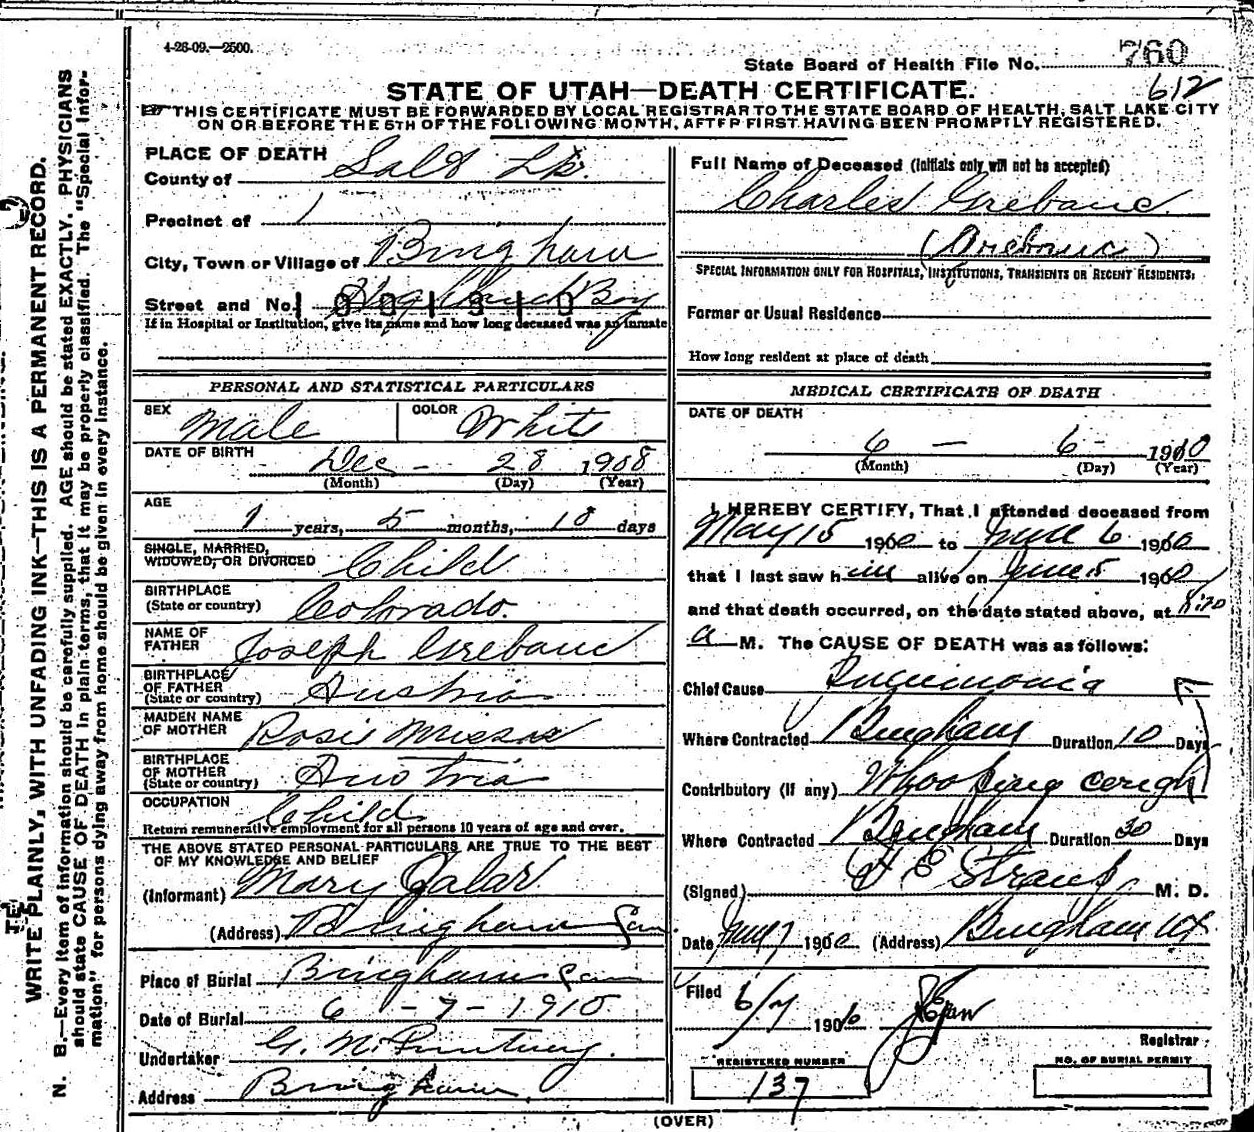 4-26-09.—2500.
760
State Board of Health File No.
612
STATE OF UTAH—DEATH CERTIFICATE.
THIS CERTIFICATE MUST BE FORWARDED BY LOCAL REGISTRAR TO THE STATE BOARD OF HEALTH, SALT LAKE CITY
ON OR BEFORE THE 5TH OF THE FOLLOWING MONTH, AFTER FIRST HAVING BEEN PROMPTLY REGISTERED.
PLACE OF DEATH
County of Salt Lk.
Precinct of 1
City, Town or Village of Bingham
Street and No.
If in Hospital or Institution, give its name and how long deceased was an inmate
Full Name of Deceased (Initials only will not be accepted)
Charles Grebanc
SPECIAL INFORMATION ONLY FOR HOSPITALS, INSTITUTIONS, TRANSIENTS OR RECENT RESIDENTS.
Former or Usual Residence
How long resident at place of death
PERSONAL AND STATISTICAL PARTICULARS
SEX Male COLOR White
DATE OF BIRTH Dec - 28 1908
(Month) (Day) (Year)
AGE 1 years, 5 months, 18 days
SINGLE, MARRIED, WIDOWED, OR DIVORCED Child
BIRTHPLACE (State or country) Colorado.
NAME OF FATHER Joseph Grebanc
BIRTHPLACE OF FATHER (State or country) Austria
MAIDEN NAME OF MOTHER Rosie
BIRTHPLACE OF MOTHER (State or country) Austria
OCCUPATION Child
Return remunerative employment for all persons 10 years of age and over.
THE ABOVE STATED PERSONAL PARTICULARS ARE TRUE TO THE BEST
OF MY KNOWLEDGE AND BELIEF
(Informant) Mary Galar
(Address) Bingham Can.
Place of Burial Bingham Can
Date of Burial 6 - 7 - 1910
Undertaker G. N.
Address Bingham.
MEDICAL CERTIFICATE OF DEATH
DATE OF DEATH
6 — 6 - 1910
(Month) (Day) (Year)
I HEREBY CERTIFY, That I attended deceased from
May 15 1910 to June 6 1910
that I last saw him alive on June 5 1910
and that death occurred, on the date stated above, at 8:20
a M. The CAUSE OF DEATH was as follows:
Chief Cause Pneumonia
Where Contracted Bingham Duration 10 Days
Contributory (If any) Whooping cough
Where Contracted Bingham Duration 30 Days
(Signed) F E Straup M. D.
Date June 7 1910 (Address) Bingham Ut
Filed 6/7 1910
Registrar
REGISTERED NUMBER
137
NO. OF BURIAL PERMIT
(OVER)
WRITE PLAINLY, WITH UNFADING INK—THIS IS A PERMANENT RECORD.
N. B.—Every item of information should be carefully supplied. AGE should be stated EXACTLY. PHYSICIANS
should state CAUSE OF DEATH in plain terms, that it may be properly classified. The "Special Infor-
mation" for persons dying away from home should be given in every instance.